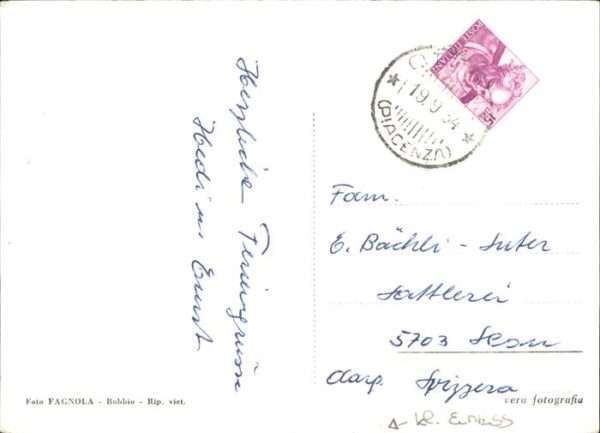 Herzliche Feriengrüsse
Hedi u. Ernst
POSTE ITALIANE
19.9.64
(PIACENZA)
Fam.
E. Bächli-Suter
Sattlerei
5703 Seon
Aarg. Svizzera
Foto FAGNOLA - Bobbio - Rip. viet.
vera fotografia